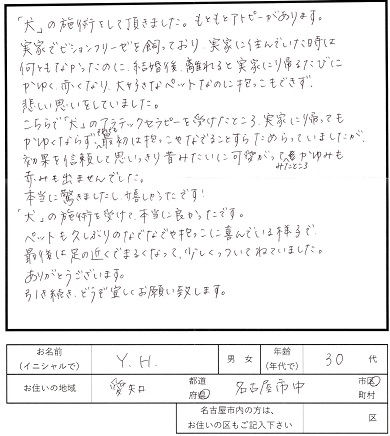 「犬」の施術をして頂きました。もともとアトピーがあります。
実家でビションフリーゼを飼っており、実家に住んでいた時は
何ともなかったのに、結婚後、離れると実家に帰るたびに
かゆく、赤くなり、大好きなペットなのに抱っこもできず、
悲しい思いをしていました。
こちらで「犬」のアラテックセラピーを受けたところ、実家に帰っても
かゆくならず、最初は抱っこやなでることすらためらっていましたが、
効果を信頼して思いっきり昔みたいに可愛がってみたところかゆみも
赤みも出ませんでした。
本当に驚きましたし、嬉しかったです!
「犬」の施術を受けて、本当に良かったです。
ペットも久しぶりのなでなでや抱っこに喜んでいる様子で、
最後は足の近くでまるくなって、少しくっついてねていました。
ありがとうございます。
引き続き、どうぞ宜しくお願い致します。
お名前
(イニシャルで) Y.H. 男 女 年齢
(年代で) 30 代
お住いの地域 愛知 都道
府県 名古屋市中 市区
町村
名古屋市内の方は、
お住いの区もご記入下さい 区